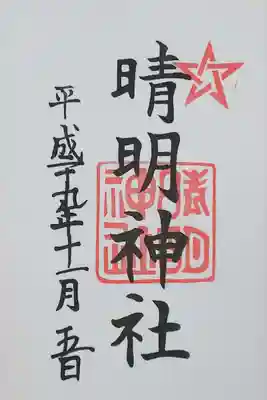 晴明神社
平成二十九年十一月五日
晴明
神社